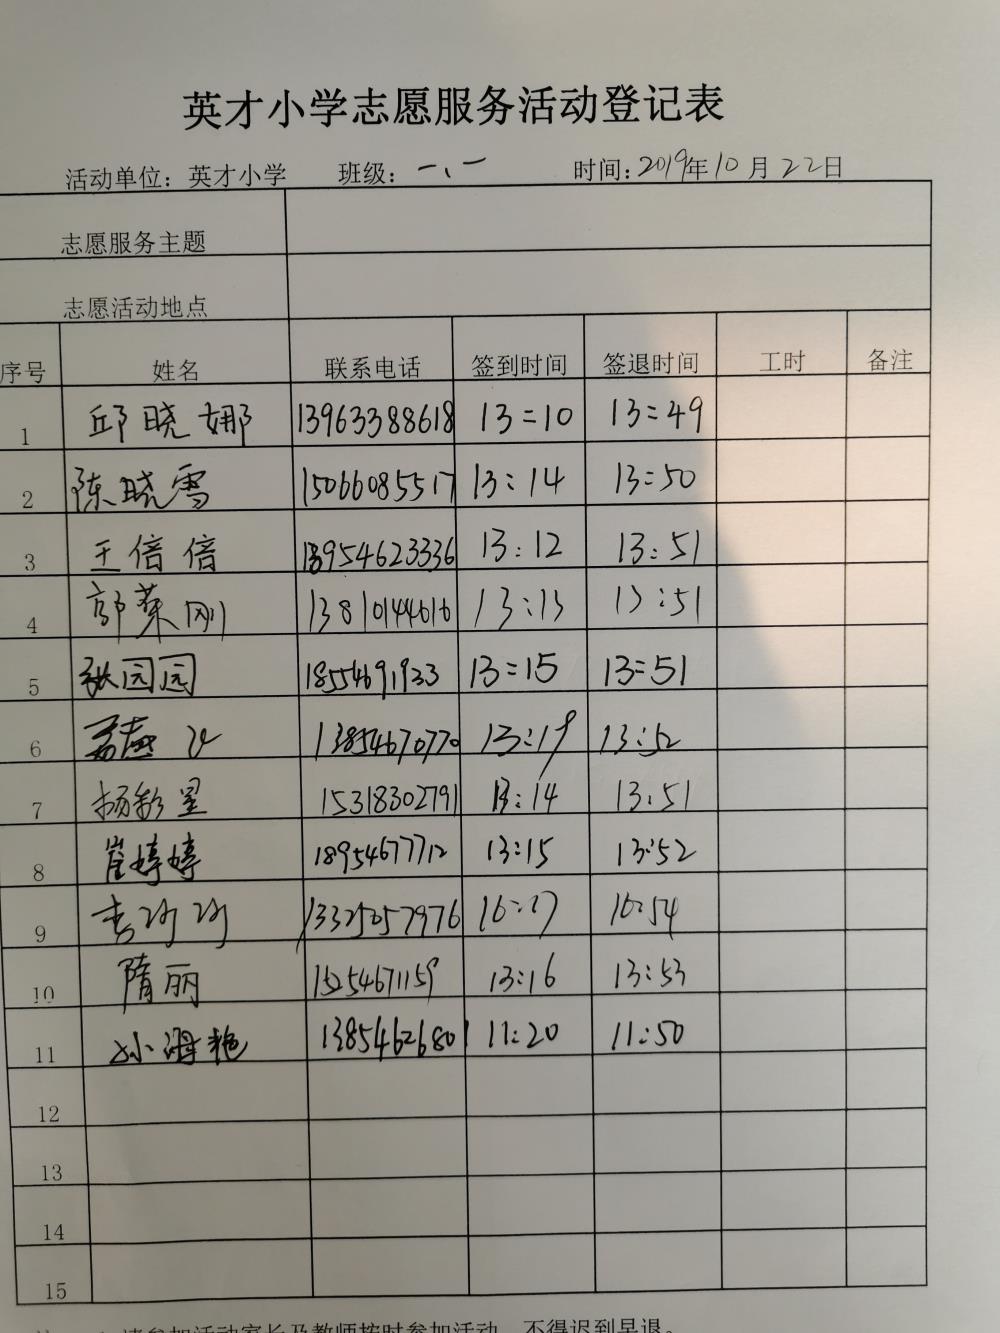 英才小学志愿服务活动登记表
活动单位：英才小学 班级：一、一 时间：2019年10月22日
志愿服务主题
志愿活动地点
序号 姓名 联系电话 签到时间 签退时间 工时 备注
1 邱晓娜 13963388618 13=10 13=49
2 陈晓雪 15066085517 13:14 13:50
3 王倍倍 13954623336 13:12 13:51
4 郭莱刚 13810144616 13:13 13:51
5 张园园 18554691933 13=15 13=51
6 13854670770 13:19 13:52
7 杨彩星 15318302791 13:14 13:51
8 崔婷婷 18954677712 13:15 13:52
9 李 13325057976 16:17 16:54
10 隋丽 15254671159 13:16 13:53
11 孙海艳 13854626801 11:20 11:50
12
13
14
15
请参加活动家长及教师按时参加活动，不得迟到早退。